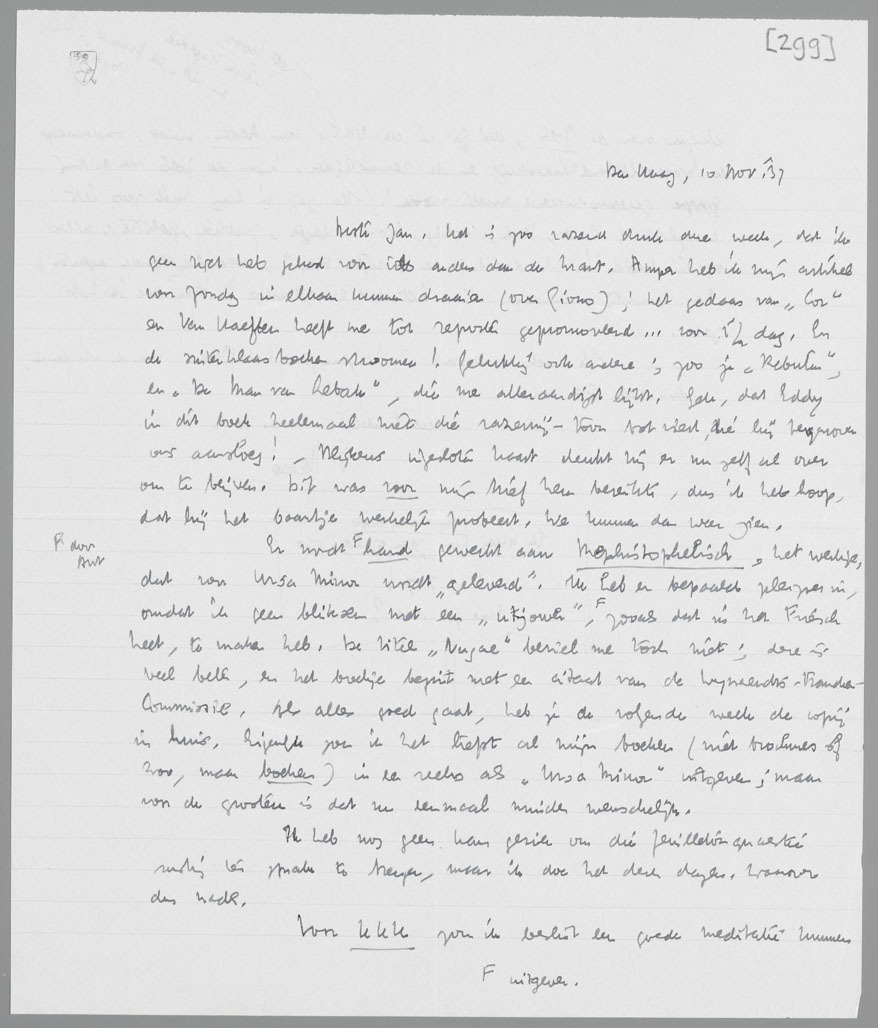 [299]
Den Haag, 10 Nov. '37
Beste Jan. Het is zoo razend druk deze week, dat ik
geen tijd heb gehad voor iets anders dan de krant. Amper heb ik mijn artikel
voor Zondag in elkaar kunnen draaien (over Giono); het gedaas van „Cor"
en Van Haeften heeft me tot reporter gepromoveerd... voor 1/2 dag. En
de sinterklaasboeken stroomen! Gelukkig ook andere; zoo je „Rebuten",
en „De Man van Lebak", die me alleraardigst lijkt. Gek, dat Eddy
in dit boek heelemaal niet die razernij-toon tot viert, die hij tegenover
ons aansloeg! – Blijkens ingesloten kaart denkt hij er nu zelf al over
om te blijven. Dit was voor mijn brief hem bereikte, dus ik heb hoop,
dat hij het baantje werkelijk probeert. We kunnen dan weer zien.
Er wordt F hard gewerkt aan Mephistophelisch, het werkje,
F door
Ant
dat voor Ursa Minor wordt „geleverd". Ik heb er bepaald plezier in,
omdat ik geen bliksem met een „uitjouwer", F zooals dat in het Friesch
heet, te maken heb. De titel „Nugae" beviel me toch niet; deze is
veel beter, en het boekje begint met een citaat van de Wijnaendts-Francken-
Commissie. Als alles goed gaat, heb je de volgende week de copij
in huis. Eigenlijk zou ik het liefst al mijn boeken (niet brochures of
zoo, maar boeken) in een reeks als „Ursa Minor" uitgeven; maar
voor de grooten is dat nu eenmaal minder wenschelijk.
Ik heb nog geen kans gezien om die feuilletonquaestie
rustig ter sprake te brengen, maar ik doe het dezer dagen. Waarover
dus nader.
Voor KKK zou ik beslist een goede meditatie kunnen
F uitgever.